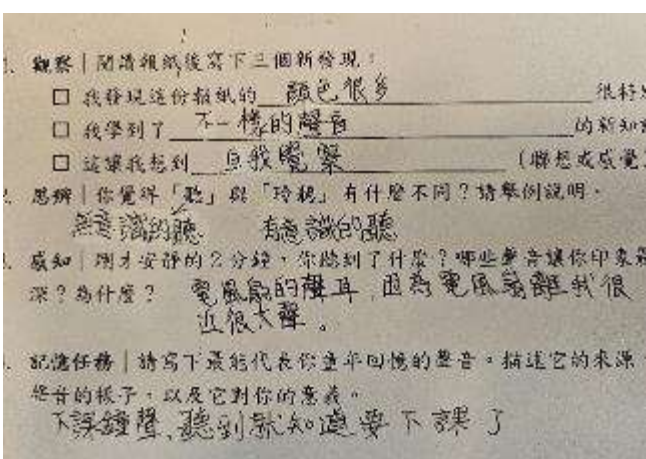 1. 觀察｜閱讀報紙後寫下三個新發現：
□ 我發現這份報紙的 顏色很多 很特別
□ 我學到了 不一樣的聲音 的新知
□ 這讓我想到 自我覺察 （聯想或感覺）
思辨｜你覺得「聽」與「聆聽」有什麼不同？請舉例說明。
無意識的聽 有意識的聽
感知｜剛才安靜的2分鐘，你聽到了什麼？哪些聲音讓你印象最
深？為什麼？ 電風扇的聲音，因為電風扇離我很
近很大聲。
記憶任務｜請寫下最能代表你童年回憶的聲音。描述它的來源、
聲音的樣子，以及它對你的意義。
下課鐘聲，聽到就知道要下課了